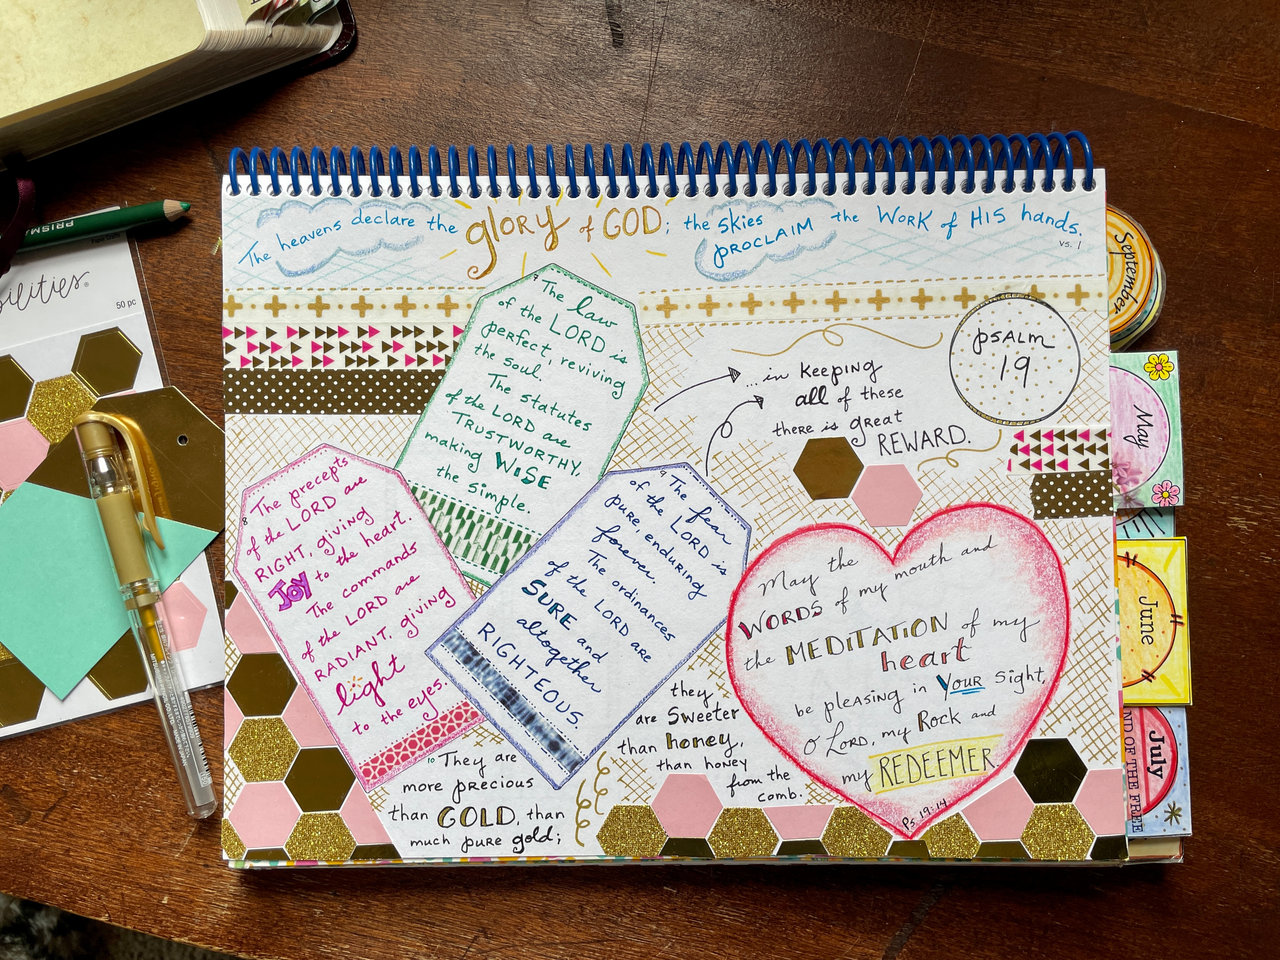 The heavens declare the glory of GOD; the skies PROCLAIM the WORK of HIS hands.
vs. 1
PSALM
19
7 The law
of the LORD is
perfect, reviving
the soul.
The statutes
of the LORD are
TRUSTWORTHY,
making WISE
the simple.
8 The precepts
of the LORD are
RIGHT, giving
JOY to the heart.
The commands
of the LORD are
RADIANT, giving
light
to the eyes.
9 The fear
of the LORD is
pure, enduring
forever.
The ordinances
of the LORD are
SURE and
altogether
RIGHTEOUS.
10 They are
more precious
than GOLD, than
much pure gold;
they
are Sweeter
than honey,
than honey
from the
comb.
...in keeping
all of these
there is great
REWARD.
May the
WORDS of my mouth and
the MEDITATION of my
heart
be pleasing in YOUR sight,
O LORD, my Rock and
my REDEEMER
Ps. 19:14
September
May
June
July
ND OF THE FREE
PRISMA
ilities®
50 pc